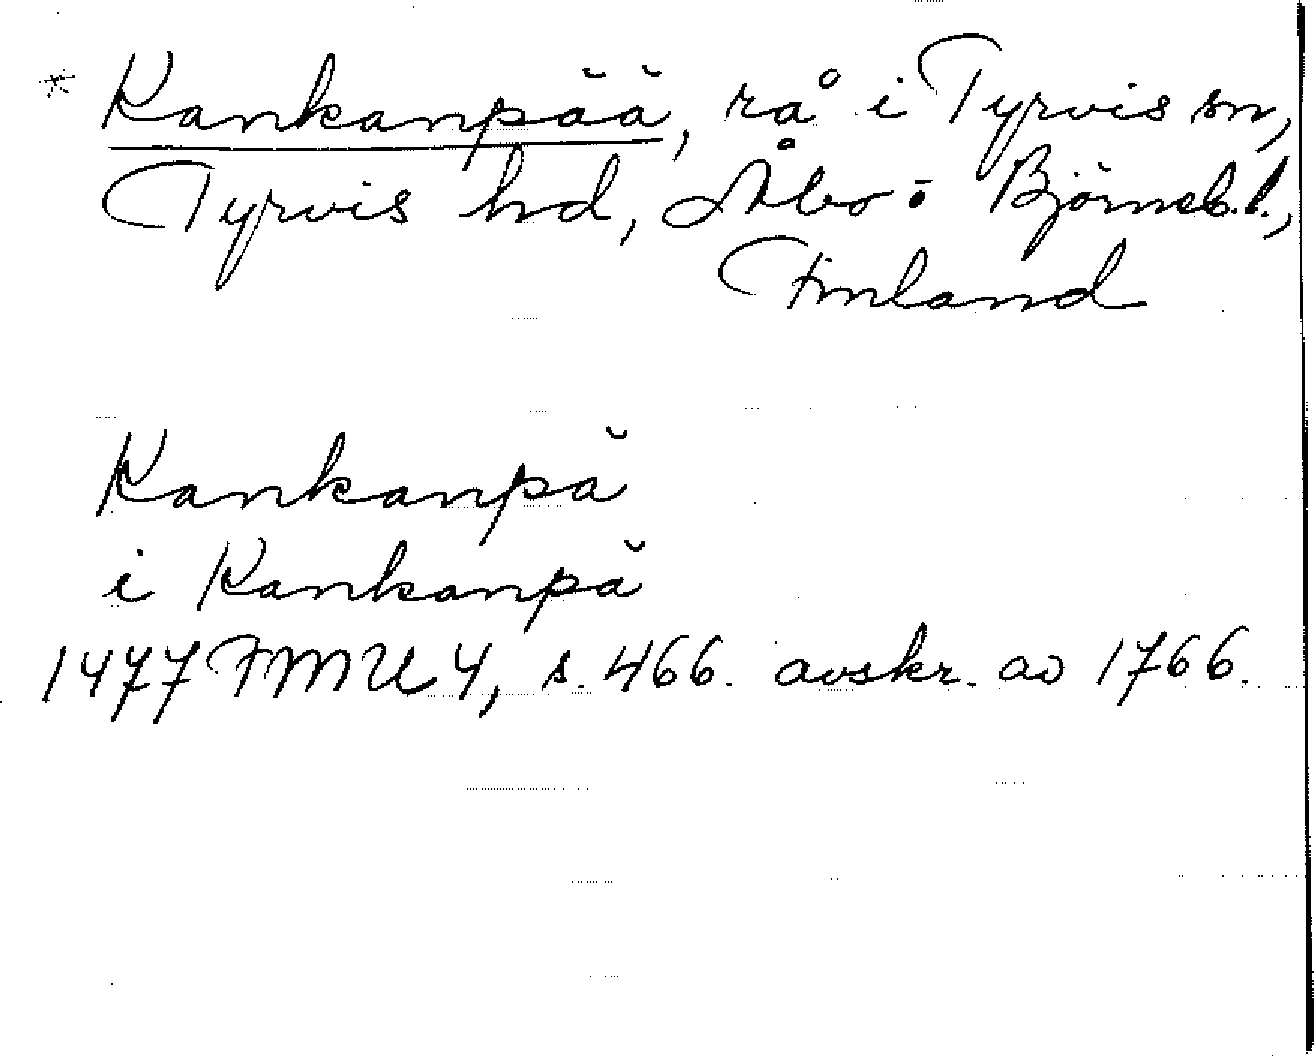 * Kankanpää, rå i Tyrvis sn,
Tyrvis hd, Åbo- Björneb.l.,
Finland
Kankanpä
i Kankanpä
1477 FMU 4, s. 466. avskr. av 1766.